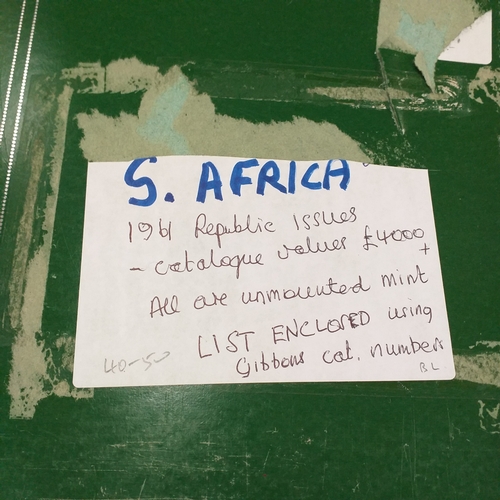 S. AFRICA
1961 Republic Issues
- catalogue values £4000
+
All are unmounted mint
LIST ENCLOSED using
Gibbons cat. numbers
40-50
BL